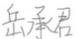 岳承君